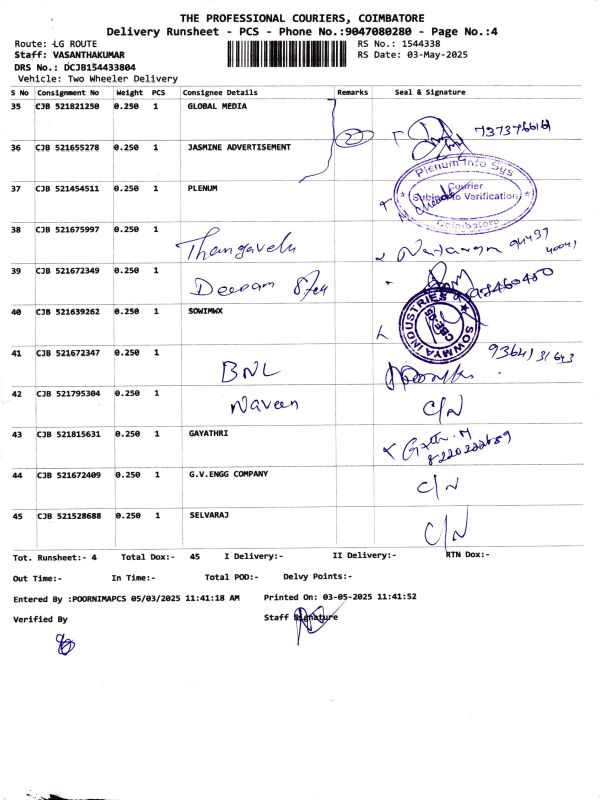 THE PROFESSIONAL COURIERS, COIMBATORE
Delivery Runsheet - PCS - Phone No.:9047080280 - Page No.:4
Route: -LG ROUTE RS No.: 1544338
Staff: VASANTHAKUMAR RS Date: 03-May-2025
DRS No.: DCJB154433804
Vehicle: Two Wheeler Delivery
S No Consignment No Weight PCS Consignee Details Remarks Seal & Signature
35 CJB 521821250 0.250 1 GLOBAL MEDIA
36 CJB 521655278 0.250 1 JASMINE ADVERTISEMENT 2
Plenum Info Sys
37 CJB 521454511 0.250 1 PLENUM Courier
Subject to Verification
Coimbatore
38 CJB 521675997 0.250 1 Thangavelu
39 CJB 521672349 0.250 1 Deepam
40 CJB 521639262 0.250 1 SOWIMWX SOWMYA INDUSTRIES
41 CJB 521672347 0.250 1 BNL 9364131643
42 CJB 521795304 0.250 1 Naveen C/N
43 CJB 521815631 0.250 1 GAYATHRI
44 CJB 521672409 0.250 1 G.V.ENGG COMPANY C/N
45 CJB 521528688 0.250 1 SELVARAJ C/N
Tot. Runsheet:- 4 Total Dox:- 45 I Delivery:- II Delivery:- RTN Dox:-
Out Time:- In Time:- Total POD:- Delvy Points:-
Entered By :POORNIMAPCS 05/03/2025 11:41:18 AM Printed On: 03-05-2025 11:41:52
Verified By Staff Signature